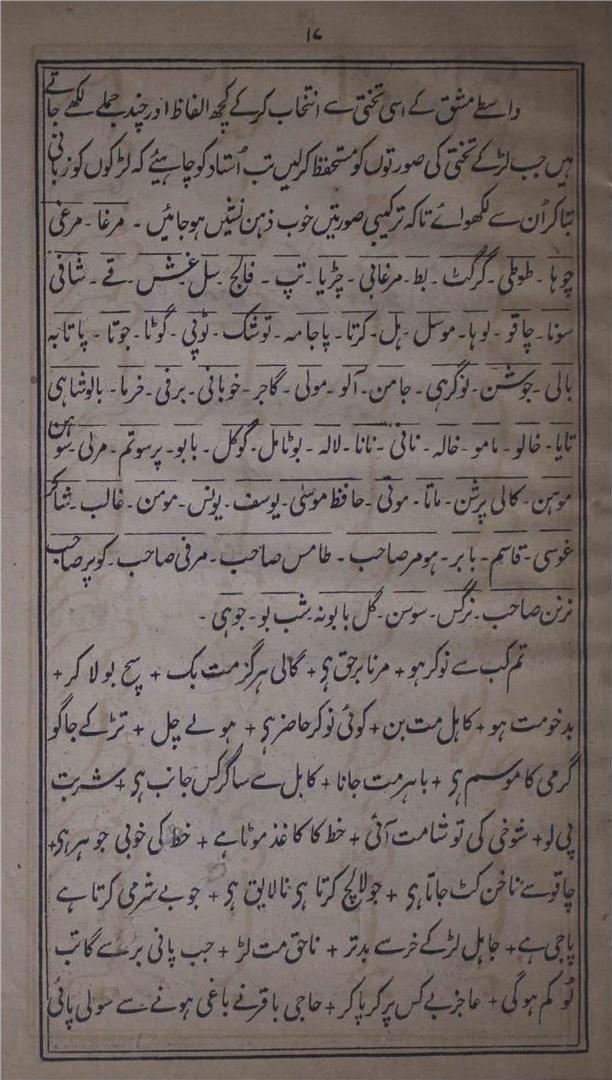 ۱۷
واسطے مشق کے اسی تختی سے انتخاب کرکے کچھ الفاظ اور چند جملے لکھے جاتے
ہیں جب لڑکے تختی کی صورتوں کو مستحفظ کرلیں تب اُستاد کو چاہیئے کہ لڑکوں کو زبانی
بتا کر اُن سے لکھوائے تاکہ ترکیبی صورتیں خوب ذہن نشیں ہوجائیں ۔ مرغا ۔ مرغی
چوہا ۔ طوطی ۔ گرگٹ ۔ بط ۔ مرغابی ۔ چڑیا ۔ تپ ۔ فالج ۔ سل ۔ غش ۔ قے ۔ شافی
سونا ۔ چاقو ۔ لوہا ۔ موسل ۔ ہل ۔ کرتا ۔ پاجامہ ۔ توشک ۔ ٹوپی ۔ گوٹا ۔ جوتا ۔ پاتابہ
بالی ۔ جوشن ۔ نوگرہی ۔ جامن ۔ آلو ۔ مولی ۔ گاجر ۔ خوبانی ۔ برفی ۔ خرما ۔ بالوشاہی
تایا ۔ خالو ۔ مامو ۔ خالہ ۔ نانی ۔ نانا ۔ لالہ ۔ بوٹامل ۔ گوکل ۔ بابو ۔ پرسوتم ۔ مرلی ۔ سوہن
موہن ۔ کالی پرشن ۔ ماتا ۔ موتی ۔ حافظ موسیٰ ۔ یوسف ۔ یونس ۔ مومن ۔ غالب ۔ شاکر
غوسی ۔ قاسم ۔ بابر ۔ ہومر صاحب ۔ طامس صاحب ۔ مرفی صاحب ۔ کوپر صاحب
نرنن صاحب ۔ نرگس ۔ سوسن ۔ گل بابونہ ۔ شب بو ۔ جوہی ۔
تم کب سے نوکر ہو + مرنا برحق ہی + گالی ہرگز مت بک + سچ بولا کر +
بدخو مت ہو + کاہل مت بن + کوئی نوکر حاضر ہی + ہولے چل + تڑکے جاگو
گرمی کا موسم ہی + باہر مت جانا + کابل سے ساگر کس جانب ہی + شربت
پی لو + شوخی کی تو شامت آئی + خط کا کاغذ موٹا ہے + خط کی خوبی جوہر ہی +
چاقو سے ناخن کٹ جاتا ہی + جو لالچ کرتا ہی نالایق ہی + جو بے شرمی کرتا ہے
پاجی ہے + جاہل لڑکے خر سے بدتر + ناحق مت لڑ + جب پانی برسے گا تب
لُو کم ہوگی + عاجز بے کس پر کرپا کر + حاجی باقر نے باغی ہونے سے سولی پائی